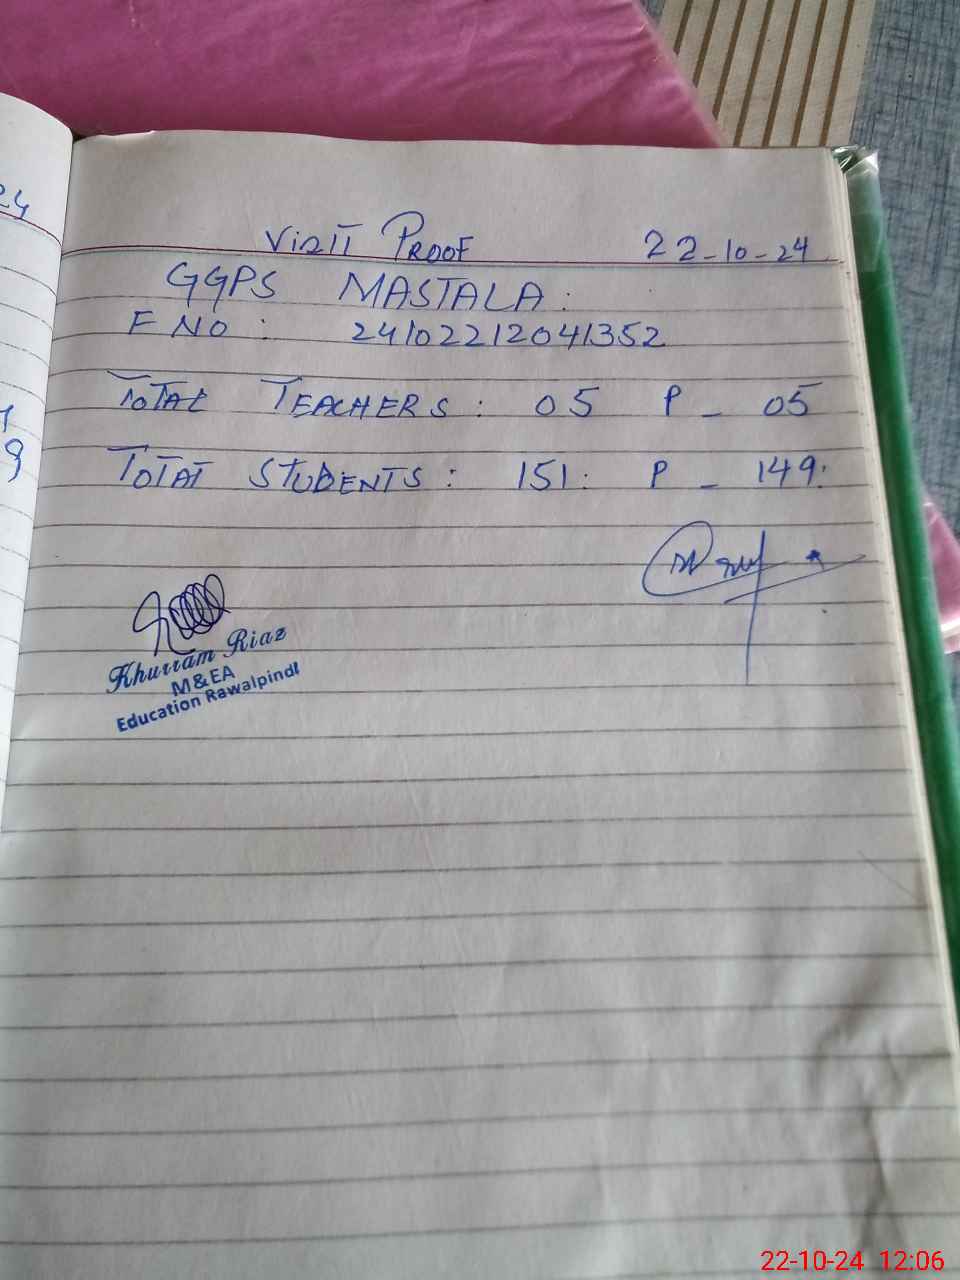 Visit Proof 22-10-24
GGPS MASTALA:
F NO: 24102212041352
Total Teachers: 05 P - 05
Total Students: 151: P - 149:
Khurram Riaz
M&EA
Education Rawalpindi
22-10-24 12:06